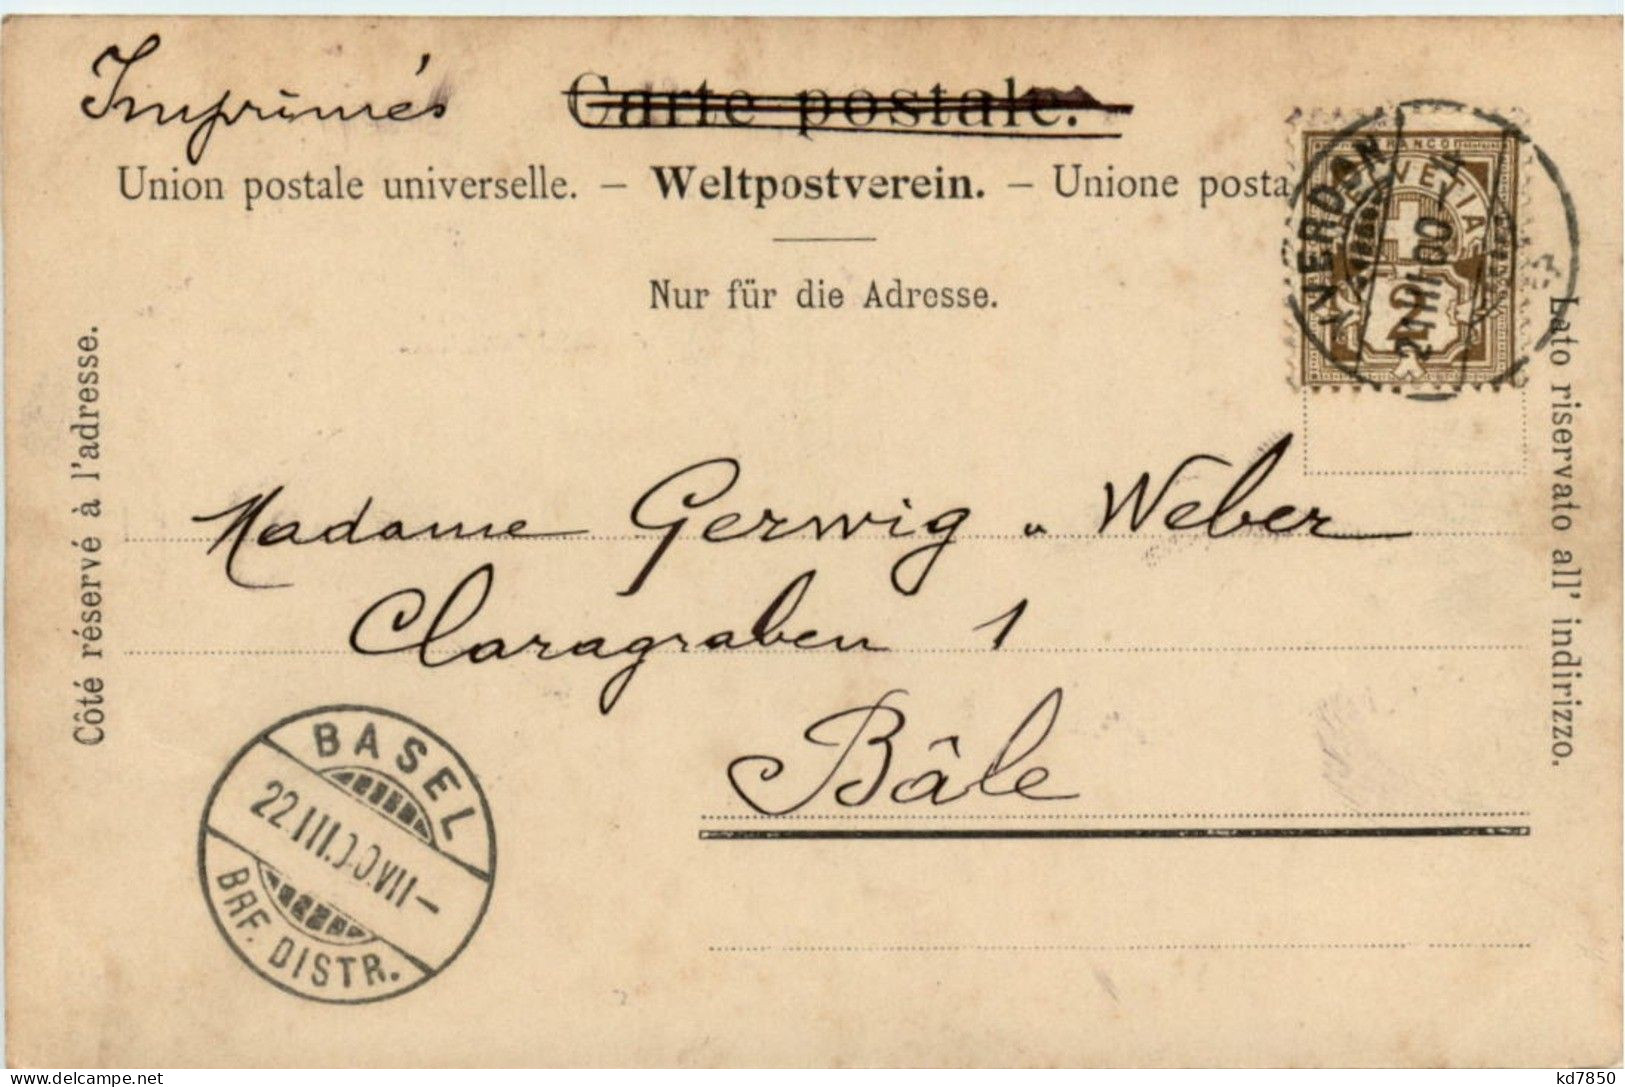 Imprimés
Carte postale.
Union postale universelle. – Weltpostverein. – Unione posta
Nur für die Adresse.
Côté réservé à l'adresse.
Lato riservato all' indirizzo.
YVERDON
FRANCO
HELVETIA
2
Madame Gerwig u Weber
Claragraben 1
Bâle
BASEL
22.III.00.VII–
BRF. DISTR.
kd7850